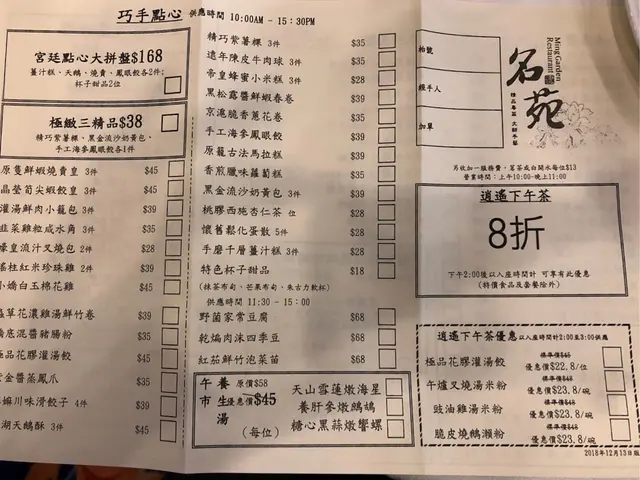 巧手點心 供應時間 10:00AM - 15:30PM
宮廷點心大拼盤$168
薑汁糕、天鵝、燒賣、鳳眼餃各2件;
杯子甜品2位
極緻三精品$38
精巧紫薯粿、黑金流沙奶黃包、
手工海參鳳眼餃各1件
原隻鮮蝦燒賣皇 3件 $45
晶瑩筍尖蝦餃皇 3件 $45
灌湯鮮肉小籠包 3件 $39
韭菜雞粒咸水角 3件 $35
蠔皇流汁叉燒包 2件 $28
瑤柱紅米珍珠雞 2件 $39
小嫡白玉棉花雞 $45
蟲草花濃雞湯鮮竹卷 $39
橋底混醬豬腸粉 $35
極品花膠灌湯餃 $45
黃金醬蒸鳳爪 $35
麻川味滑餃子 4件 $39
湖天鵝酥 3件 $45
精巧紫薯粿 3件 $35
遠年陳皮牛肉球 3件 $35
帝皇蜂蜜小米糕 3件 $28
黑松露醬鮮蝦春卷 $39
京滬脆香蔥花卷 $35
手工海參鳳眼餃 $39
原籠古法馬拉糕 $39
香煎臘味蘿蔔糕 $35
黑金流沙奶黃包 3件 $39
桃膠西施杏仁茶 位 $28
懷舊鬆化蛋散 5件 $28
手磨千層薑汁糕 3件 $28
特色杯子甜品 $18
(抹茶布甸、芒果布甸、朱古力軟杯)
供應時間 11:30 - 15:00
野菌家常豆腐 $68
乾煸肉沫四季豆 $68
紅茄鮮竹泡菜苗 $68
午市養生湯
原價$58
優惠價$45
(每位)
天山雪蓮燉海星
養肝參燉鷓鴣
糖心黑蒜燉響螺
枱號
經手人
加單
Ming Garden
Restaurant
名苑
另收加一服務費,茗茶或白開水每位$13
營業時間:上午10:00-晚上11:00
逍遙下午茶
8折
下午2:00後以入座時間計 可享有此優惠
(特價食品及套餐除外)
逍遙下午茶優惠 以入座時間計2:00至3:00供應
極品花膠灌湯餃 標準價$45 優惠價$22.8/位
午爐叉燒湯米粉 標準價$48 優惠價$23.8/碗
豉油雞湯米粉 標準價$48 優惠價$23.8/碗
脆皮燒鵝瀨粉 標準價$48 優惠價$23.8/碗
2018年12月13日版